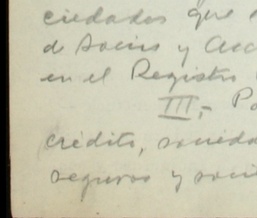 ciedades que
d Socios y Acc
en el Registro
III,- Po
crédito, socieda
seguros y soci